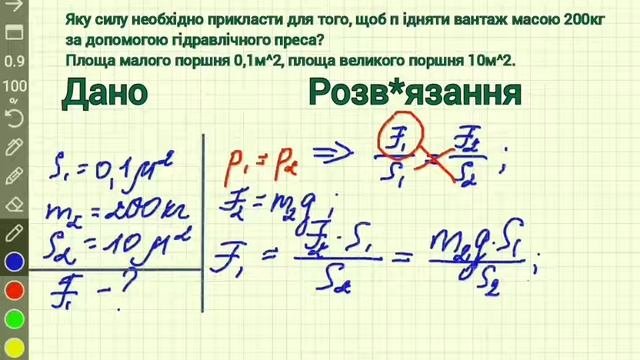 Яку силу необхідно прикласти для того, щоб п ідняти вантаж масою 200кг
за допомогою гідравлічного преса?
Площа малого поршня 0,1м^2, площа великого поршня 10м^2.
Дано
Розв*язання
0.9
100
S₁ = 0,1 м²
m₂ = 200 кг
S₂ = 10 м²
F₁ - ?
p₁ = p₂ => F₁/S₁ = F₂/S₂ ;
F₂ = m₂g ;
F₁ = F₂·S₁/S₂ = m₂g·S₁/S₂ ;